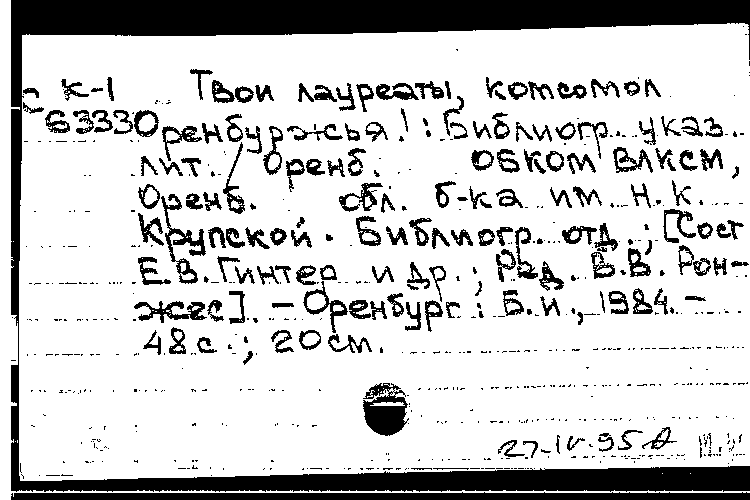 С К-1 Твои лауреаты, комсомол
63330 Оренбуржья! : Библиогр. указ.
лит. / Оренб. обком ВЛКСМ,
Оренб. обл. б-ка им. Н.К.
Крупской. Библиогр. отд. ; [Сост
Е.В. Гинтер и др. ; Ред. В.В. Рон-
жес]. – Оренбург : Б.и., 1984. –
48 с. ; 20 см.
27-IV-95